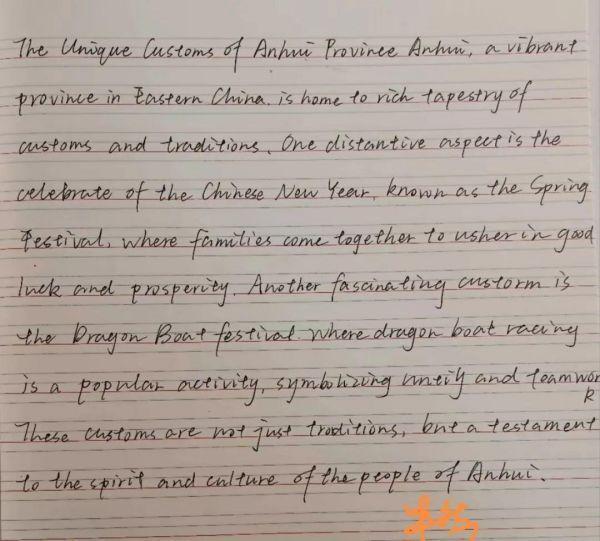 The Unique Customs of Anhui Province Anhui, a vibrant
province in Eastern China, is home to rich tapestry of
customs and traditions. One distantive aspect is the
celebrate of the Chinese New Year, known as the Spring
Festival, where families come together to usher in good
luck and prosperity. Another fascinating custorm is
the Dragon Boat festival where dragon boat racing
is a popular activity, symbolizing untily and teamwor
k
These customs are not just traditions, but a testament
to the spirit and culture of the people of Anhui.